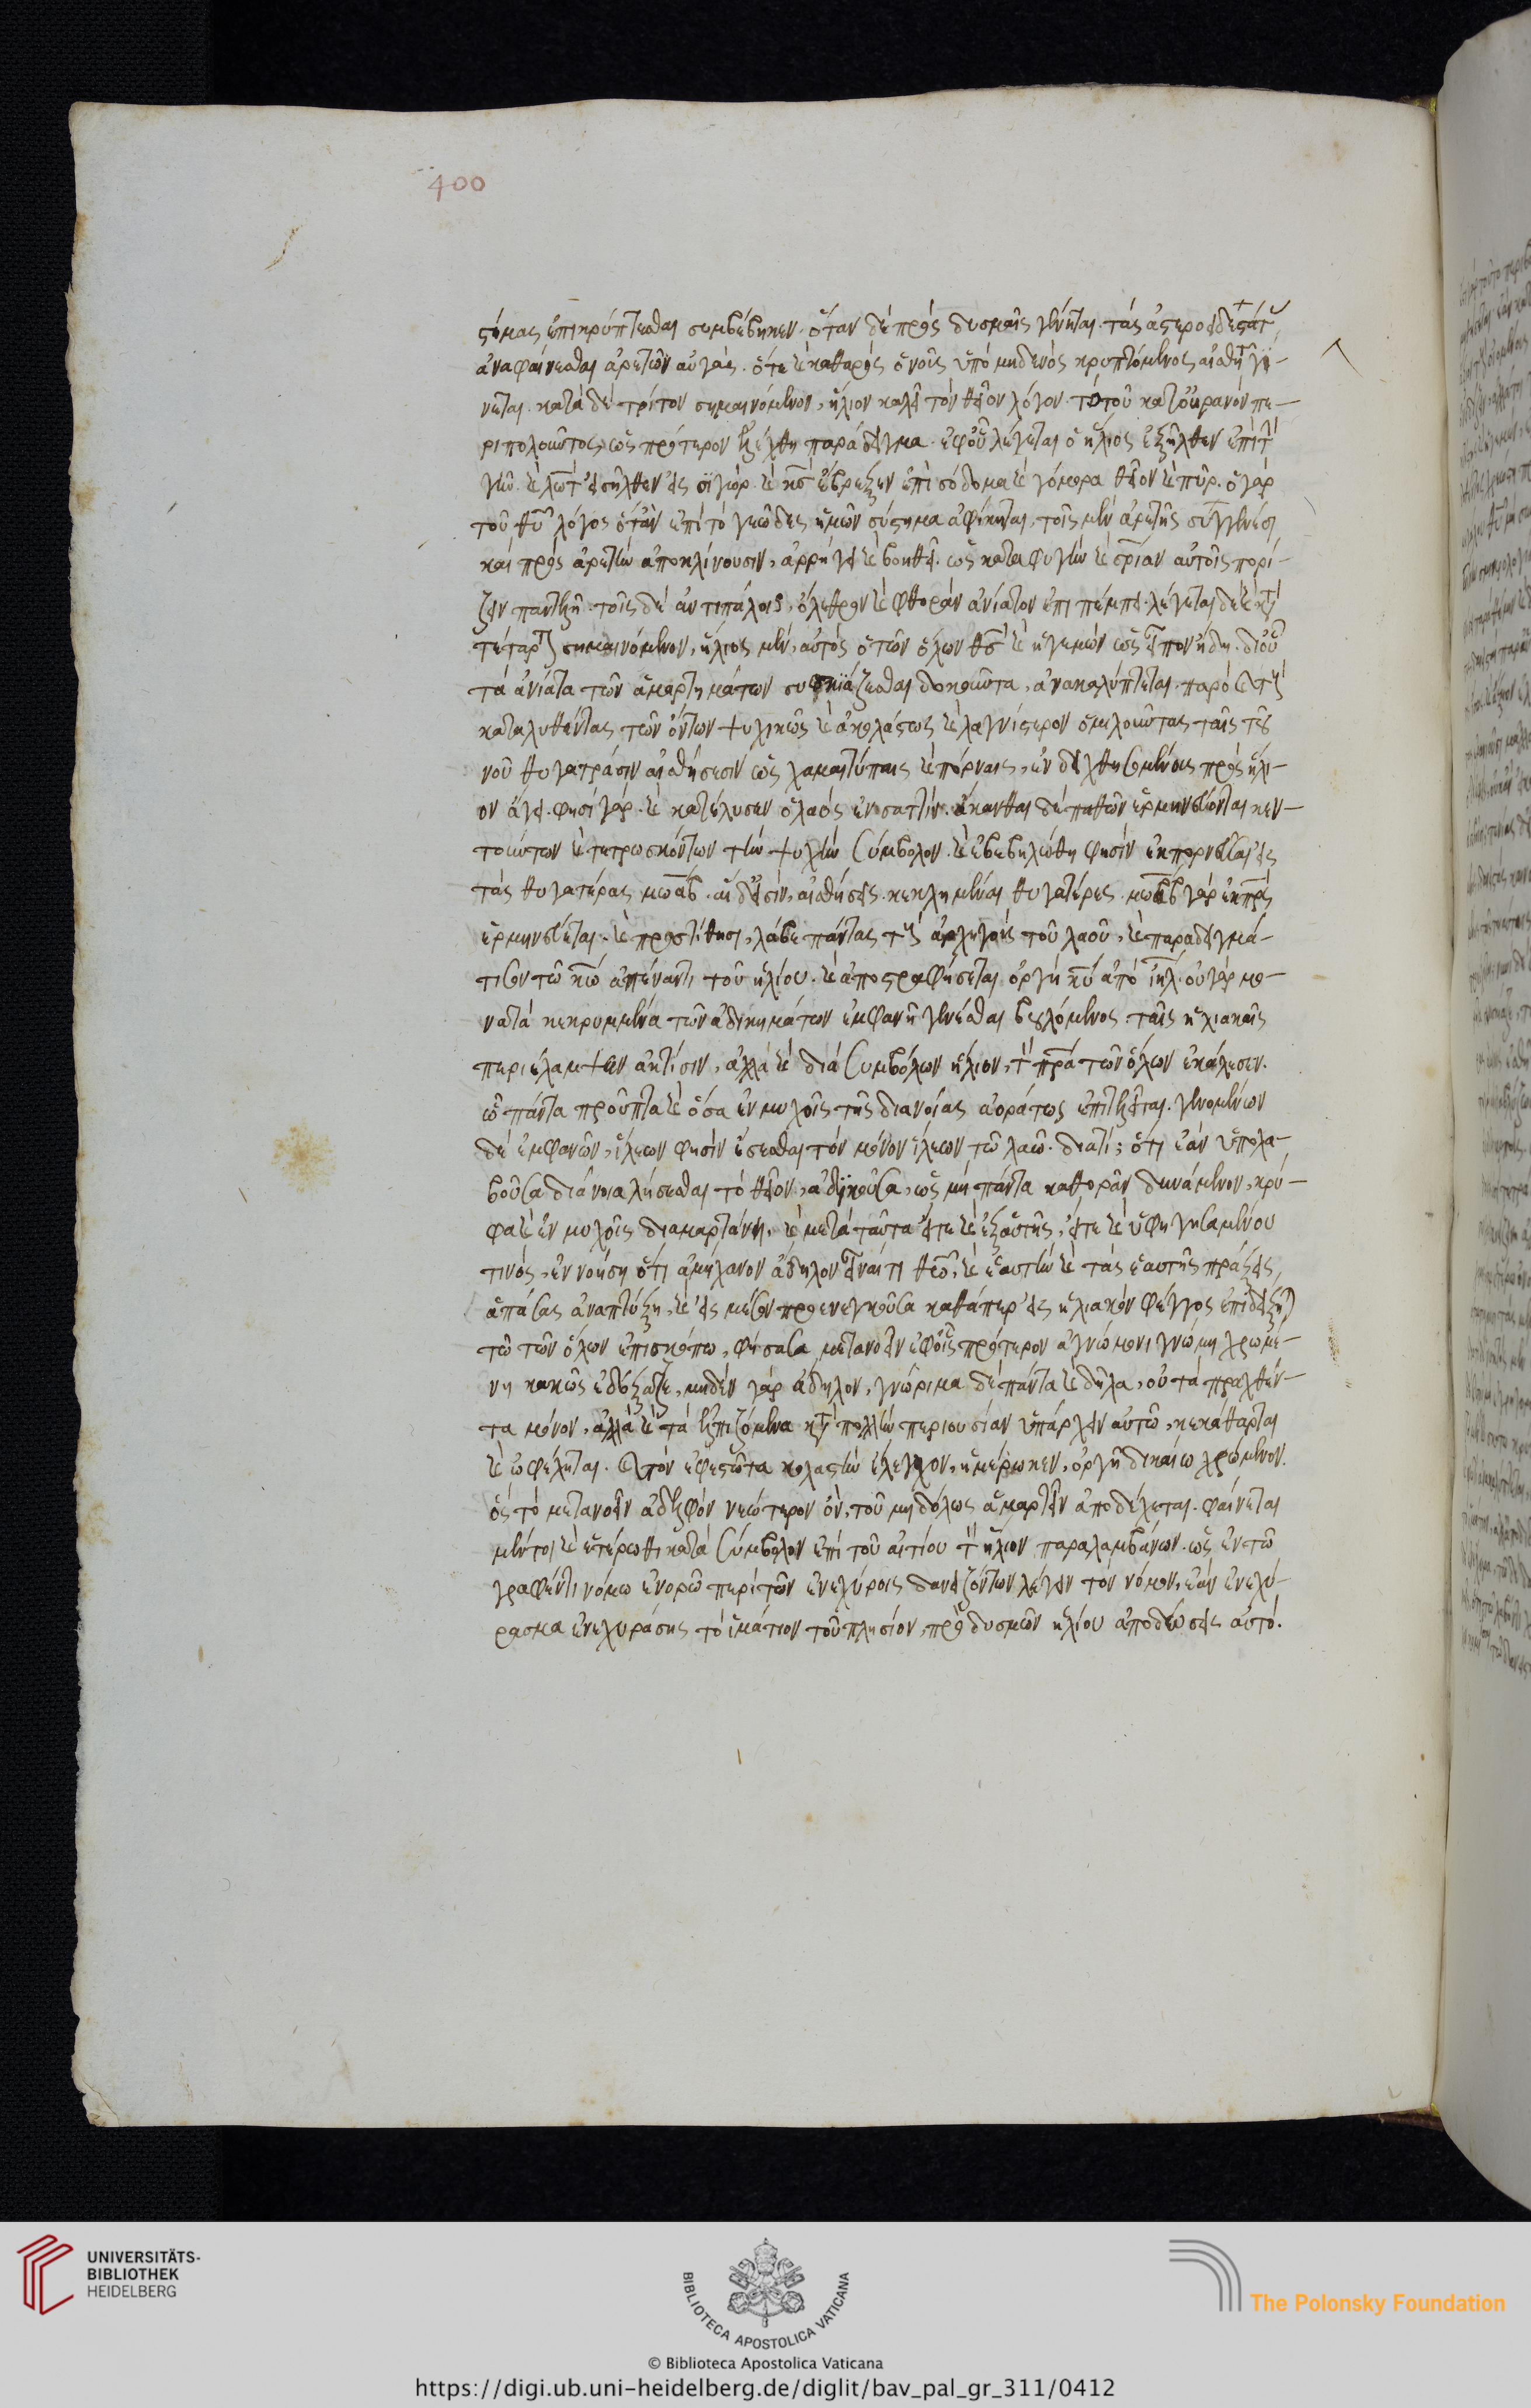 400
στόμας ἐπικρύπτεσθαι συμβέβηκεν. ὅταν δὲ πρὸς δυσμαῖς γένηται. τὰς ἀστεροειδεστάτ
ἀναφαίνεσθαι ἀρετῶν αὐγάς. ὅτε καὶ καθαρὸς ὁ νοῦς ὑπὸ μηδενὸς κρυπτόμενος αἰσθητ γί-
νεται. κατὰ δὲ τρίτον σημαινόμενον, ἥλιον καλεῖ τὸν θεῖον λόγον. τὸ τοῦ κατ οὐρανὸν πε-
ριπολοῦντος, ὡς πρότερον ἐλέχθη παράδειγμα. ἐφ' οὗ λέγεται ὁ ἥλιος ἐξῆλθεν ἐπὶ τ
γῆν. καὶ λὼτ εἰσῆλθεν εἰς σιγώρ. καὶ κς ἔβρεξεν ἐπὶ σόδομα καὶ γόμορα θεῖον καὶ πῦρ. ὁ γὰρ
τοῦ θυ λόγος ὅταν ἐπὶ τὸ γεῶδες ἡμῶν σύστημα ἀφίκηται, τοῖς μὲν ἀρετῆς συγγενέσι
καὶ πρὸς ἀρετὴν ἀποκλίνουσιν, ἀρρήγει καὶ βοηθεῖ. ὡς καταφυγὴν καὶ σρίαν αὐτοῖς πορί-
ζειν παντελῆ. τοῖς δὲ ἀντιπάλοις, ὄλεθρον καὶ φθορὰν ἀνίατον ἐπιπέμπει. λέγεται δὲ καὶ κτ
τέταρτ σημαινόμενον, ἥλιος μὲν, αὐτὸς ὁ τῶν ὅλων θς καὶ ἡγεμὼν ὡς εἶπον ἤδη. δι' οὗ
τὰ ἀνίατα τῶν ἁμαρτημάτων συσκιάζεσθαι δοκοῦντα, ἀνακαλύπτεται. παρὸ καὶ τς
καταλυθέντας τῶν ὄντων ψυχικῶς καὶ ἀκολάστως καὶ λαγνίστερον ὁμιλοῦντας ταῖς τοῦ
νοῦ θυγατράσιν αἰσθήσεσιν ὡς χαμαιτύπαις καὶ πόρναις, ἐνδειχθησομένους πρὸς ἥλι-
ον ἄγει. φησὶ γάρ. καὶ κατέλυσεν ὁ λαὸς ἐν σαττίν. ἄκανθαι δὲ παθῶν ἑρμηνεύονται κεν-
τούντων καὶ τιτρωσκόντων τὴν ψυχὴν σύμβολον. καὶ ἐβεβηλώθη φησὶν ἐκπορνεῦσαι εἰς
τὰς θυγατέρας μωάβ. αἱ δ' εἰσὶν, αἰσθήσεις. κεκλημέναι θυγατέρες. μωὰβ γὰρ ἐκ πρς
ἑρμηνεύεται. καὶ προστίθησι, λάβε πάντας τς ἀρχηγοὺς τοῦ λαοῦ, καὶ παραδειγμά-
τισον τῶ κω ἀπέναντι τοῦ ἡλίου. καὶ ἀποστραφήσεται ὀργὴ κυ ἀπὸ ιηλ. οὐ γὰρ μό-
να τὰ κεκρυμμένα τῶν ἀδικημάτων ἐμφανῆ γενέσθαι βουλόμενος. ταῖς ἡλιακαῖς
περιέλαμψεν ἀκτίσιν, ἀλλὰ καὶ διὰ συμβόλων ἥλιον, τ πρα τῶν ὅλων ἐκάλεσεν.
ὦ πάντα προῦπτα καὶ ὅσα ἐν μυχοῖς τῆς διανοίας ἀοράτως ἐπιτελεῖται. γενομένων
δὲ ἐμφανῶν, ἵλεων φησὶν ἔσεσθαι τὸν μόνον ἵλεων τῶ λαῶ. διατί; ὅτι ἐὰν ὑπολα-
βοῦσα διάνοια λήσεσθαι τὸ θεῖον, ἀδικοῦσα, ὡς μὴ πάντα καθορᾶν δυνάμενον, κρύ-
φα καὶ ἐν μυχοῖς διαμαρτάνη, καὶ μετὰ ταῦτα εἴτε καὶ ἐξ αὑτῆς, εἴτε καὶ ὑφηγησαμένου
τινὸς, ἐννοήση ὅτι ἀμήχανον ἄδηλον εἶναί τι θεῶ, καὶ ἑαυτὴν καὶ τὰς ἑαυτῆς πράξεις
ἁπάσας ἀναπτύξη, καὶ εἰς μέσον προενεγκοῦσα καθάπερ εἰς ἡλιακὸν φέγγος ἐπιδείξη
τῶ τῶν ὅλων ἐπισκόπω, φήσασα μετανοεῖν ἐφ' οἷς πρότερον ἀγνώμονι γνώμη χρωμέ-
νη κακῶς ἐδόξαζε, μηδὲν γὰρ ἄδηλον, γνώριμα δὲ πάντα καὶ δῆλα, οὐ τὰ πραχθέν-
τα μόνον, ἀλλὰ καὶ τὰ ἐλπιζόμενα κτ πολλὴν περιουσίαν ὑπάρχειν αὐτῶ, κεκάθαρται
καὶ ὠφέληται. καὶ τὸν ἐφεστῶτα κολαστὴν ἔλεγχον, ἡμέρωκεν, ὀργῆ δικαίω χρώμενον.
ὃς τὸ μετανοεῖν ἀδελφὸν νεώτερον ὂν, τοῦ μηδόλως ἁμαρτεῖν ἀποδέχεται. φαίνεται
μέντοι καὶ ἑτέρωθι κατὰ σύμβολον ἐπὶ τοῦ αἰτίου τ ἥλιον παραλαμβάνων. ὡς ἐν τῶ
γραφέντι νόμω ἐνορῶ περὶ τῶν ἐνεχύροις δανειζόντων λέγειν τὸν νόμον, ἐὰν ἐνεχύ-
ρασμα ἐνεχυράσης τὸ ἱμάτιον τοῦ πλησίον, πρὸ δυσμῶν ἡλίου ἀποδώσεις αὐτό.
UNIVERSITÄTS-
BIBLIOTHEK
HEIDELBERG
BIBLIOTECA APOSTOLICA VATICANA
The Polonsky Foundation
© Biblioteca Apostolica Vaticana
https://digi.ub.uni-heidelberg.de/diglit/bav_pal_gr_311/0412